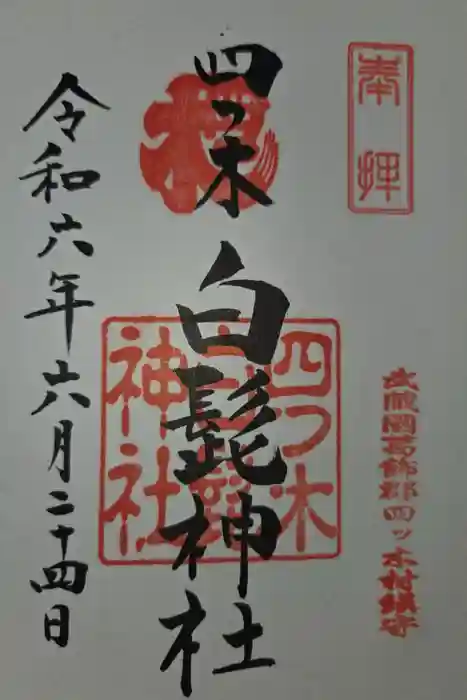 奉拝
武蔵國葛飾郡四ッ木村鎮守
四つ木
白髭神社
四つ木
白髭
神社
令和六年六月二十四日